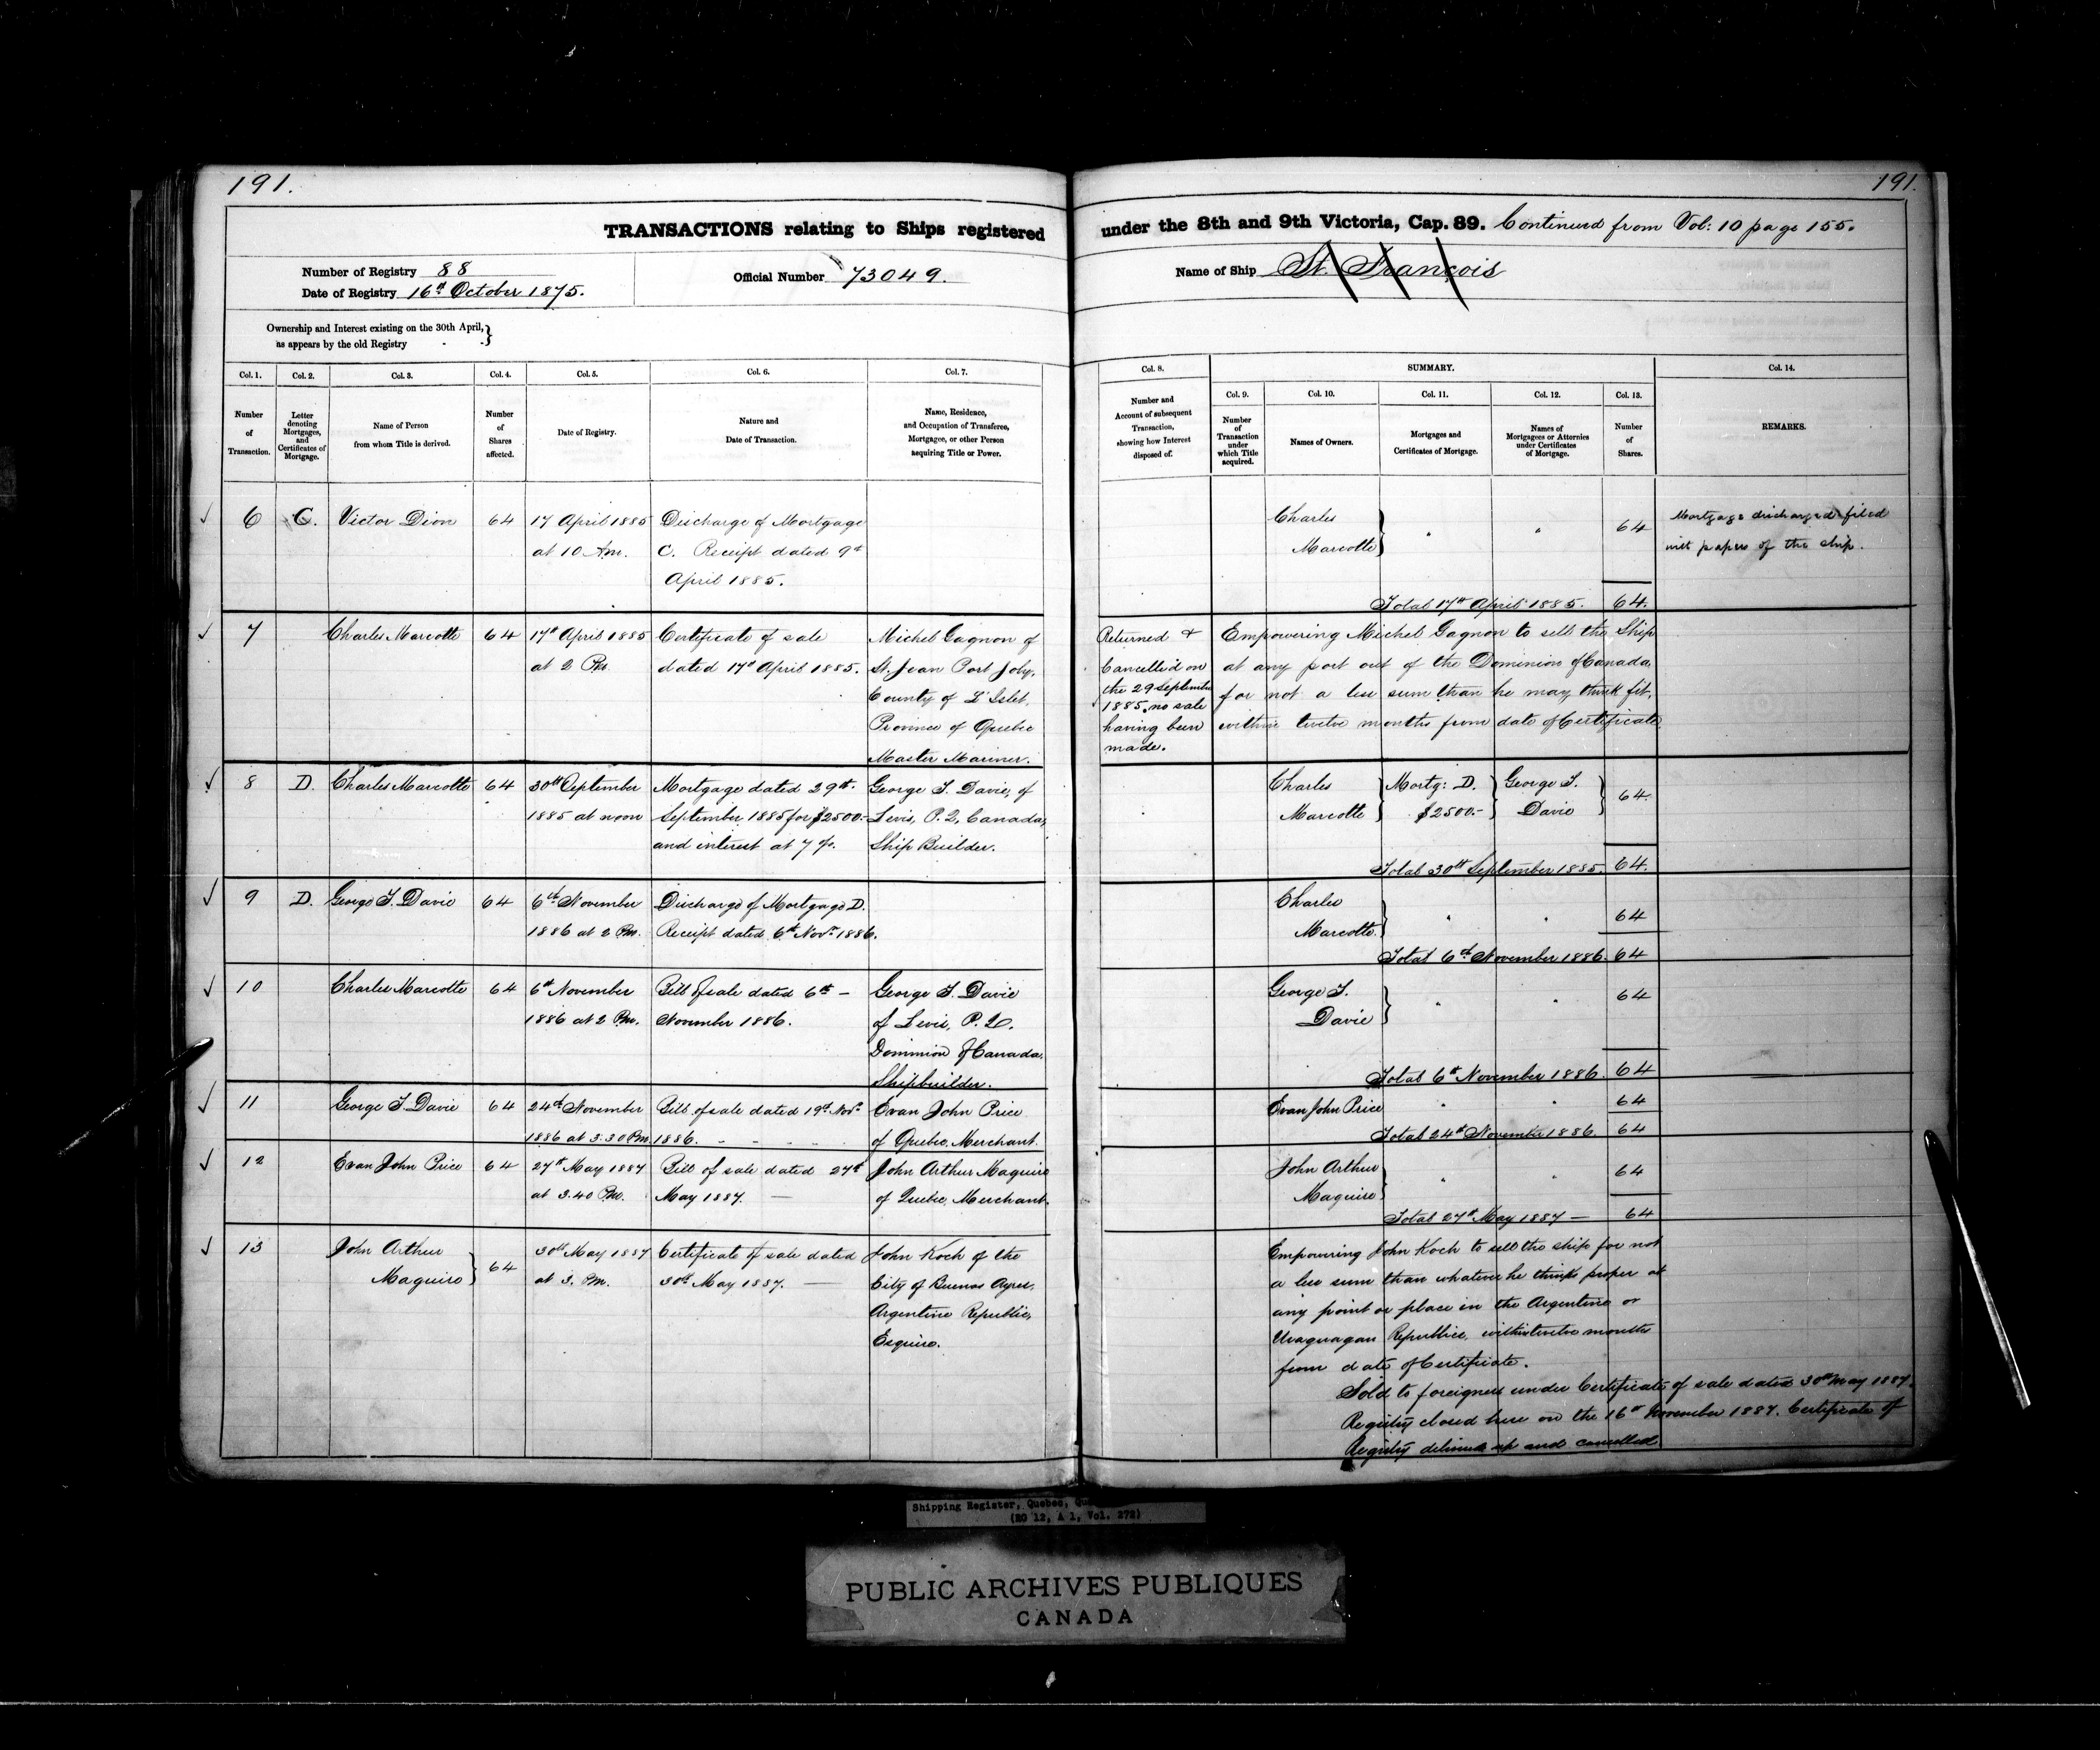 191.
191.
TRANSACTIONS relating to Ships registered under the 8th and 9th Victoria, Cap. 89. Continued from Vol: 10 page 155.
Number of Registry 88
Date of Registry 16th October 1875.
Official Number 73049.
Name of Ship St. François
Ownership and Interest existing on the 30th April,
as appears by the old Registry
Col. 1.
Number
of
Transaction.
Col. 2.
Letter
denoting
Mortgages,
and
Certificates of
Mortgage.
Col. 3.
Name of Person
from whom Title is derived.
Col. 4.
Number
of
Shares
affected.
Col. 5.
Date of Registry.
Col. 6.
Nature and
Date of Transaction.
Col. 7.
Name, Residence,
and Occupation of Transferee,
Mortgagee, or other Person
acquiring Title or Power.
Col. 8.
Number and
Account of subsequent
Transaction,
showing how Interest
disposed of.
SUMMARY.
Col. 9.
Number
of
Transaction
under
which Title
acquired.
Col. 10.
Names of Owners.
Col. 11.
Mortgages and
Certificates of Mortgage.
Col. 12.
Names of
Mortgagees or Attornies
under Certificates
of Mortgage.
Col. 13.
Number
of
Shares.
Col. 14.
REMARKS.
6
C.
Victor Dion
64
17 April 1885
at 10 Am.
Discharge of Mortgage
C. Receipt dated 9th
April 1885.
Charles
Marcotte
64
Total 17th April 1885. 64.
Mortgage discharged filed
with papers of the ship.
7
Charles Marcotte
64
17th April 1885
at 2 Pm.
Certificate of sale
dated 17th April 1885.
Michel Gagnon of
St. Jean Port Joly,
County of L'Islet,
Province of Quebec
Master Mariner.
Returned &
Cancelled on
the 29 September
1885, no sale
having been
made.
Empowering Michel Gagnon to sell the Ship
at any port out of the Dominion of Canada,
for not a less sum than he may think fit,
within twelve months from date of Certificate
8
D.
Charles Marcotte
64
30th September
1885 at noon
Mortgage dated 29th
September 1885 for $2500.-
and interest at 7 %.
George T. Davie, of
Levis, P.Q. Canada,
Ship Builder.
Charles
Marcotte
Mortg: D.
$2500.-
George T.
Davie
64.
Total 30th September 1885. 64.
9
D.
George T. Davie
64
6th November
1886 at 2 Pm.
Discharge of Mortgage D.
Receipt dated 6th Novr. 1886.
Charles
Marcotte.
64
Total 6th November 1886. 64
10
Charles Marcotte
64
6th November
1886 at 2 Pm.
Bill of sale dated 6th -
November 1886.
George T. Davie
of Levis, P.Q.
Dominion of Canada,
Shipbuilder.
George T.
Davie
64
Total 6th November 1886. 64
11
George T. Davie
64
24th November
1886 at 3.30 Pm.
Bill of sale dated 19th Novr.
1886.
Evan John Price
of Quebec, Merchant.
Evan John Price
64
Total 24th November 1886. 64
12
Evan John Price
64
27th May 1887
at 3.40 Pm.
Bill of sale dated 27th
May 1887. —
John Arthur Maguire
of Quebec, Merchant.
John Arthur
Maguire
64
Total 27th May 1887 — 64
13
John Arthur
Maguire
64
30th May 1887
at 3. Pm.
Certificate of sale dated
30th May 1887. —
John Koch of the
City of Buenos Ayres,
Argentine Republic,
Esquire.
Empowering John Koch to sell the ship for not
a less sum than whatever he thinks proper at
any point or place in the Argentine or
Uraguagan Republics, within twelve months
from date of Certificate.
Sold to foreigners under Certificate of sale dated 30th May 1887.
Registry closed here on the 16th November 1887. Certificate of
Registry delivered up and cancelled.
Shipping Register, Quebec,
(RG 12, A 1, Vol. 272)
PUBLIC ARCHIVES PUBLIQUES
CANADA